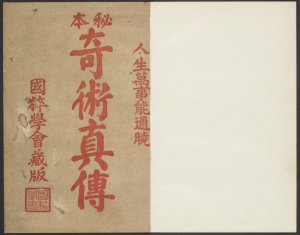 人生萬事能通曉
秘本
奇術真傳
國粹學會藏版